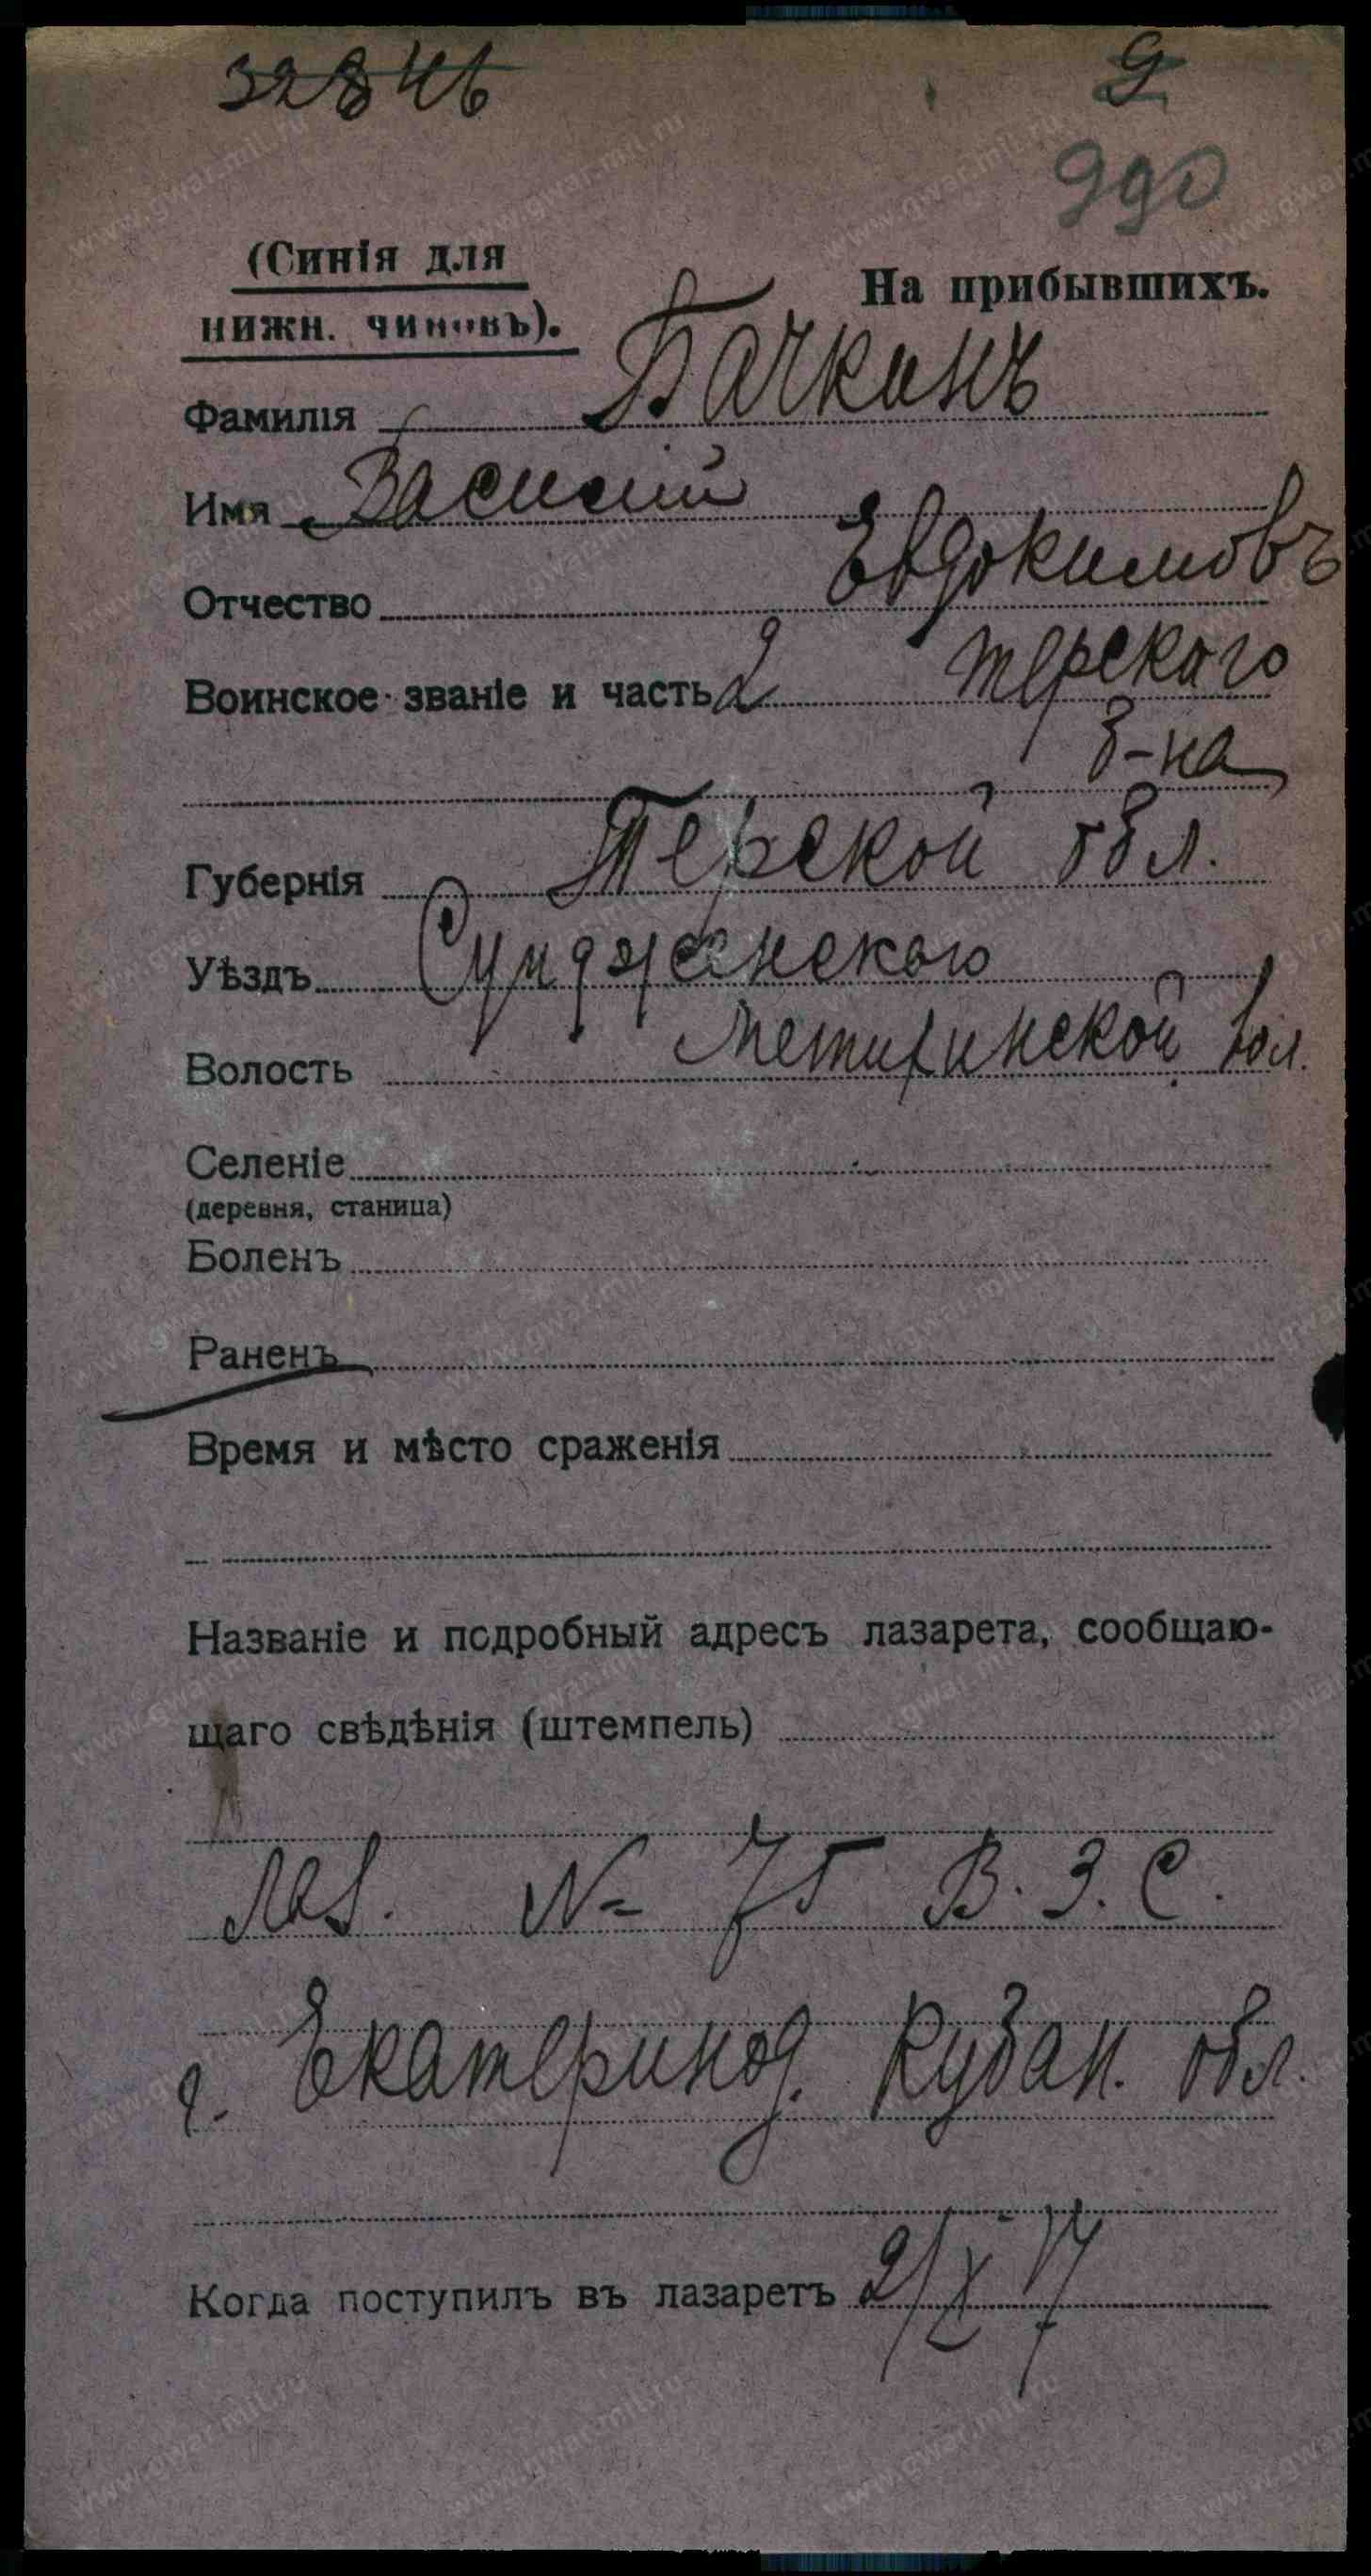 32846
9
990
(Синія для
нижн. чиновъ).
На прибывшихъ.
Фамилія Бачкинъ
Имя Василій
Отчество Евдокимовъ
Воинское званіе и часть 2 Терского
б-на
Губернія Терской обл.
Уѣздъ Сунженскаго
Волость вол.
Селеніе
(деревня, станица)
Боленъ
Раненъ
Время и мѣсто сраженія
Названіе и подробный адресъ лазарета, сообщаю-
щаго свѣдѣнія (штемпель)
№ 75 В. З. С.
г. Екатеринод. Кубан. обл.
Когда поступилъ въ лазаретъ 2/X 17
www.gwar.mil.ru